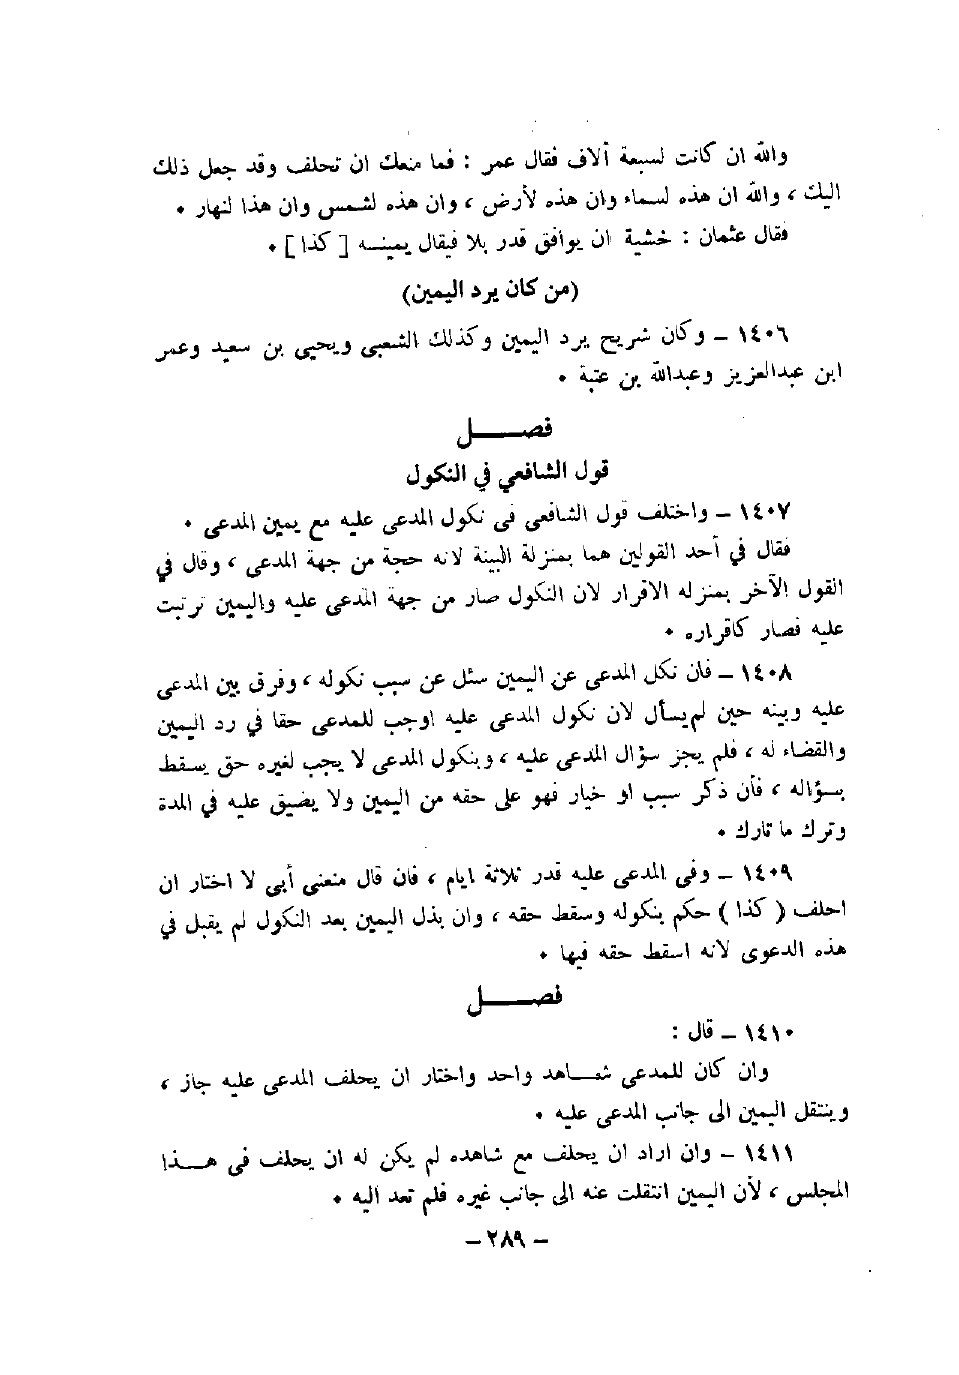 والله ان كانت لسبعة ألاف فقال عمر : فما منعك ان تحلف وقد جعل ذلك
اليك ، والله ان هذه لسماء وان هذه لأرض ، وان هذه لشمس وان هذا لنهار •
فقال عثمان : خشية ان يوافق قدر بلا فيقال يمينه [ كذا ] •
(من كان يرد اليمين)
١٤٠٦ – وكان شريح يرد اليمين وكذلك الشعبي ويحيى بن سعيد وعمر
ابن عبدالعزيز وعبدالله بن عتبة •
فصل
قول الشافعي في النكول
١٤٠٧ – واختلف قول الشافعي في نكول المدعى عليه مع يمين المدعي •
فقال في أحد القولين هما بمنزلة البينة لانه حجة من جهة المدعي ، وقال في
القول الآخر بمنزله الاقرار لان النكول صار من جهة المدعى عليه واليمين ترتبت
عليه فصار كاقراره •
١٤٠٨ – فان نكل المدعى عن اليمين سئل عن سبب نكوله ، وفرق بين المدعى
عليه وبينه حين لم يسأل لان نكول المدعى عليه اوجب للمدعى حقا في رد اليمين
والقضاء له ، فلم يجز سؤال المدعى عليه ، وبنكول المدعى لا يجب لغيره حق يسقط
بسؤاله ، فأن ذكر سبب او خيار فهو على حقه من اليمين ولا يضيق عليه في المدة
وترك ما تارك •
١٤٠٩ – وفى المدعى عليه قدر ثلاثة ايام ، فان قال منعنى أبي لا اختار ان
احلف ( كذا ) حكم بنكوله وسقط حقه ، وان بذل اليمين بعد النكول لم يقبل في
هذه الدعوى لانه اسقط حقه فيها •
فصل
١٤١٠ – قال :
وان كان للمدعى شاهد واحد واختار ان يحلف المدعى عليه جاز ،
وينتقل اليمين الى جانب المدعى عليه •
١٤١١ – وان اراد ان يحلف مع شاهده لم يكن له ان يحلف فى هذا
المجلس ، لأن اليمين انتقلت عنه الى جانب غيره فلم تعد اليه •
– ٢٨٩ –